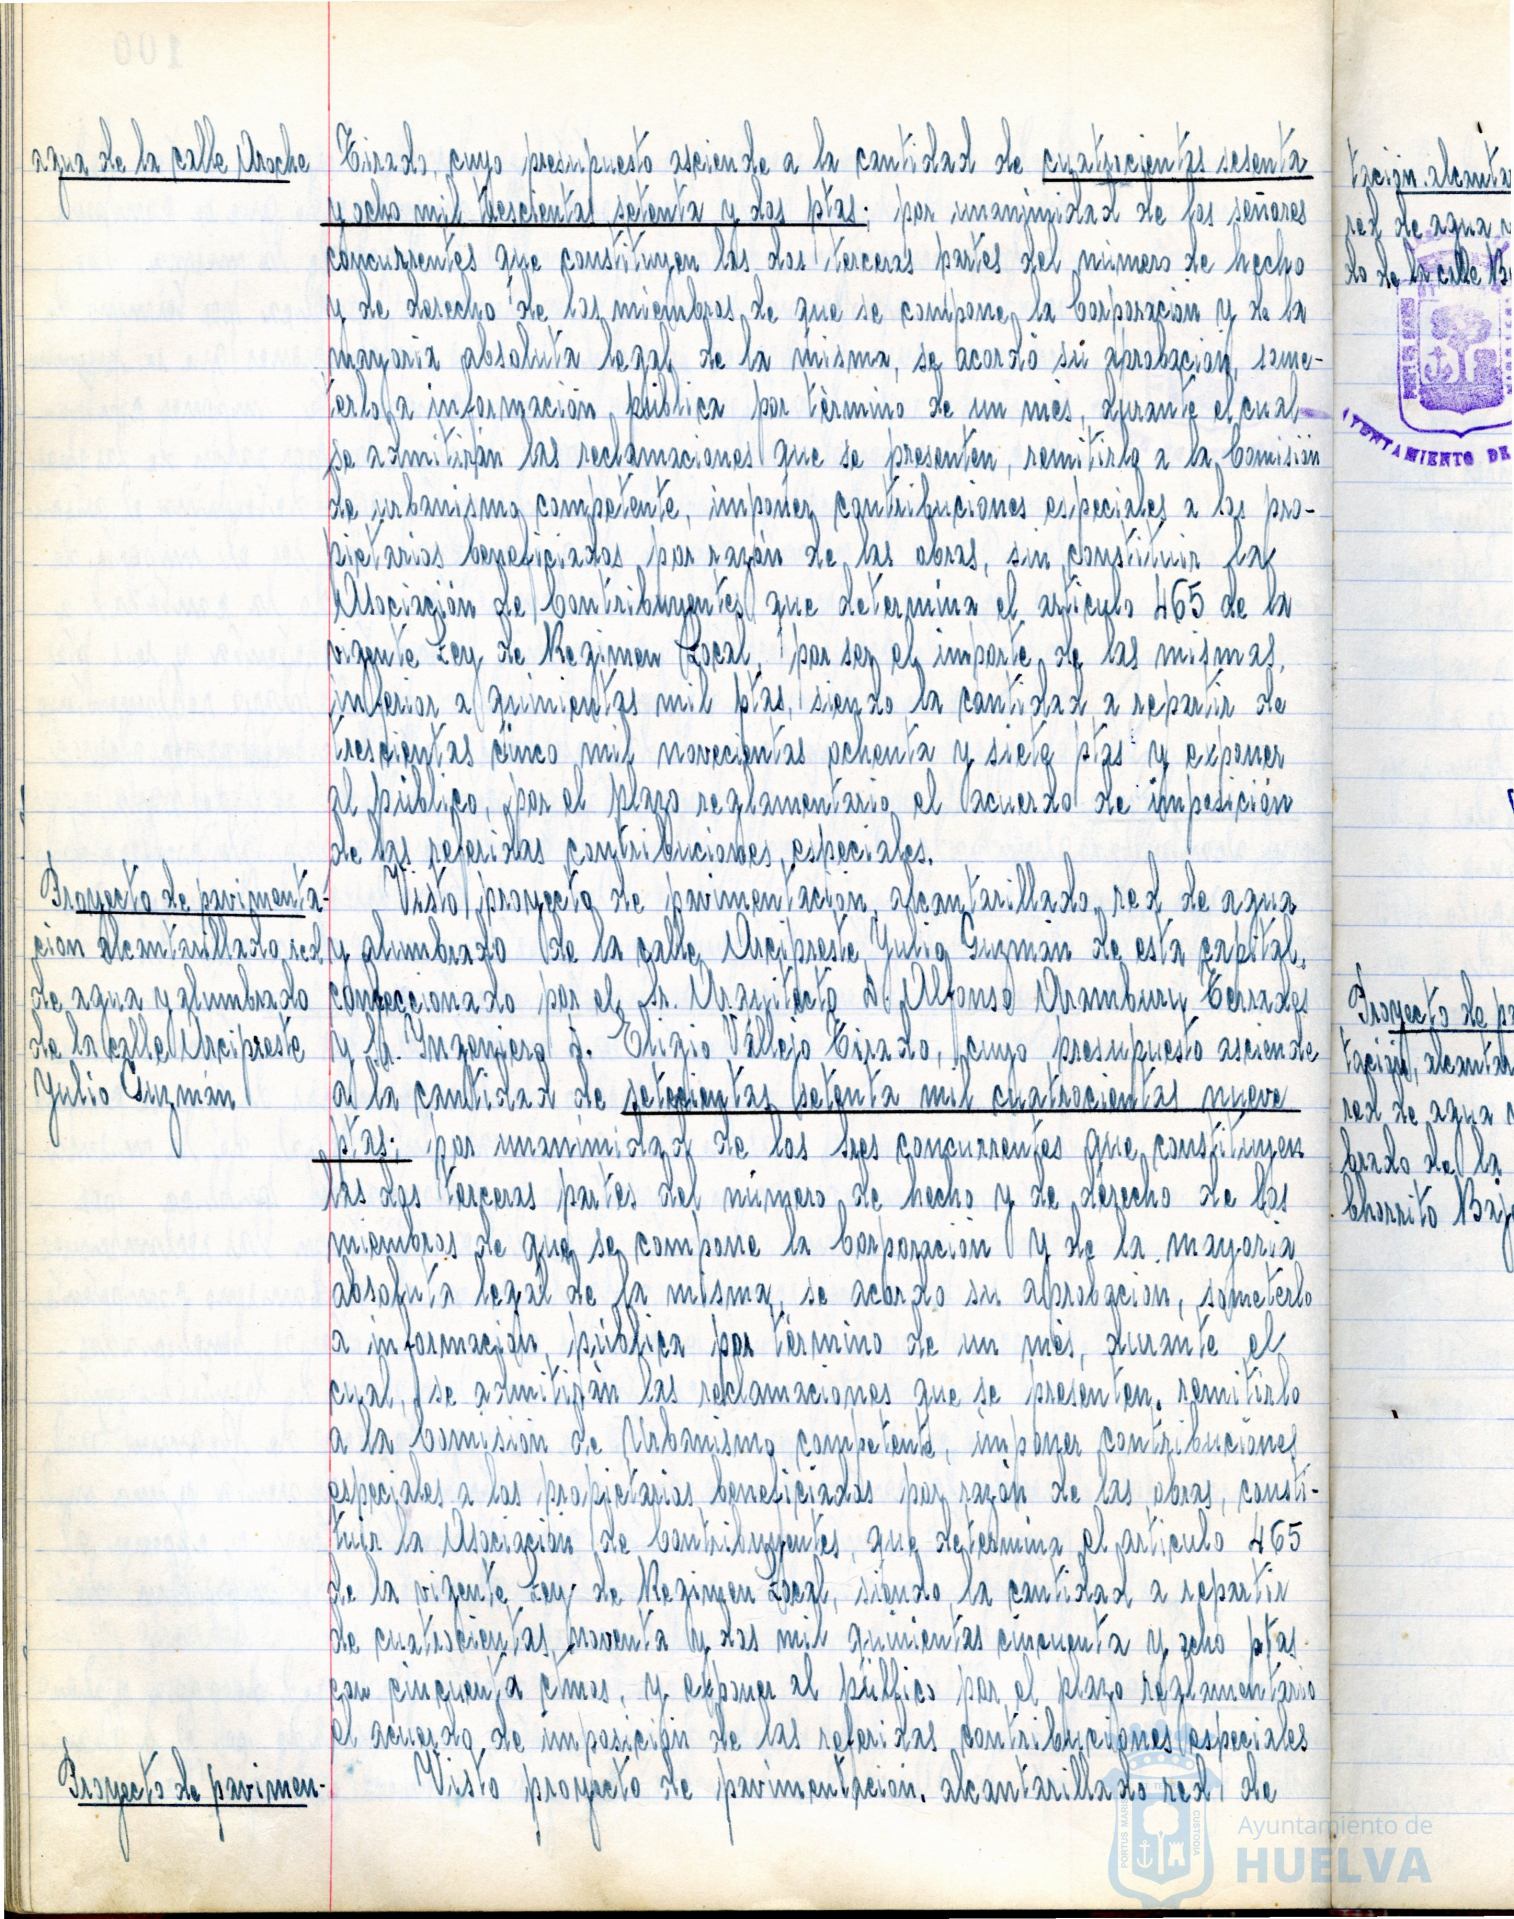 agua de la calle Aroche
Tirado, cuyo presupuesto asciende a la cantidad de cuatrocientas sesenta
y ocho mil trescientas setenta y dos ptas; por unanimidad de los señores
concurrentes que constituyen las dos terceras partes del número de hecho
y de derecho de los miembros de que se compone la Corporación y de la
mayoria absoluta legal de la misma, se acordó su aprobación, some-
terlo a información pública por término de un més, durante el cual
se admitirán las reclamaciones que se presenten, remitirlo a la Comisión
de urbanismo competente, imponer contribuciones especiales a los pro-
pietarios beneficiados por razón de las obras, sin constituir la
Asociación de Contribuyentes que determina el artículo 465 de la
vigente Ley de Regimen Local, por ser el importe de las mismas,
inferior a quinientas mil ptas, siendo la cantidad a repartir de
trescientas cinco mil novecientas ochenta y siete ptas y exponer
al público, por el plazo reglamentario el acuerdo de imposición
de las referidas contribuciones especiales.
Proyecto de pavimenta-
cion alcantarillado, red
de agua y alumbrado
de la calle Arcipreste
Yulio Guzmán
Visto proyecto de pavimentación, alcantarillado, red de agua
y alumbrado de la calle Arcipreste Yulio Guzmán de esta capital,
confeccionado por el Sr. Arquitecto D. Alfonso Aramburu Terrades
y Sr. Ingeniero D. Eligio Vallejo Tirado, cuyo presupuesto asciende
a la cantidad de setecientas setenta mil cuatrocientas nueve
ptas; por unanimidad de los sres concurrentes que constituyen
las dos terceras partes del número de hecho y de derecho de los
miembros de que se compone la Corporación y de la mayoria
absoluta legal de la misma, se acordo su aprobación, someterlo
a información, pública por término de un mès, durante el
cual, se admitirán las reclamaciones que se presenten, remitirlo
a la Comisión de Urbanismo competente, imponer contribuciones
especiales a los propietarios beneficiados por razón de las obras, consti-
tuir la Asociación de Contribuyentes, que determina el articulo 465
de la vigente Ley de Regimen Local, siendo la cantidad a repartir
de cuatrocientas noventa y dos mil quinientas cincuenta y ocho ptas
con cincuenta ctmos, y exponer al público por el plazo reglamentario
el acuerdo de imposición de las referidas contribuciones especiales
Proyecto de pavimen-
Visto proyecto de pavimentación, alcantarillado red de
tación alcanta
red de agua
do de la calle
AYUNTAMIENTO DE
Proyecto de pa
tación, alcantar
red de agua
brado de la
Chorrito Baj
PORTUS MARIS
CUSTODIA
Ayuntamiento de
HUELVA